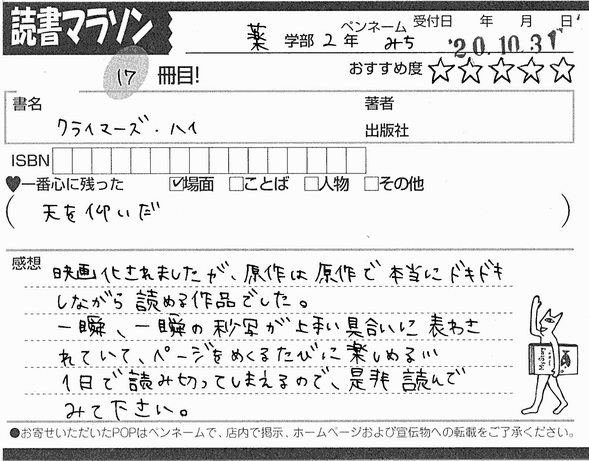 読書マラソン
薬 学部 2 年
ペンネーム みち
受付日 年 月 日
'20.10.31
17 冊目!
おすすめ度 ☆☆☆☆☆
書名 クライマーズ・ハイ
著者
出版社
ISBN
♥一番心に残った ☑場面 □ことば □人物 □その他
( 天を仰いだ )
感想
映画化されましたが、原作は原作で本当にドキドキ
しながら読める作品でした。
一瞬、一瞬の秒写が上手い具合いに表わさ
れていて、ページをめくるたびに楽しめる!!!
1日で読み切ってしまえるので、是非読んで
みて下さい。
My Story
●お寄せいただいたPOPはペンネームで、店内で掲示、ホームページおよび宣伝物への転載をご了承ください。